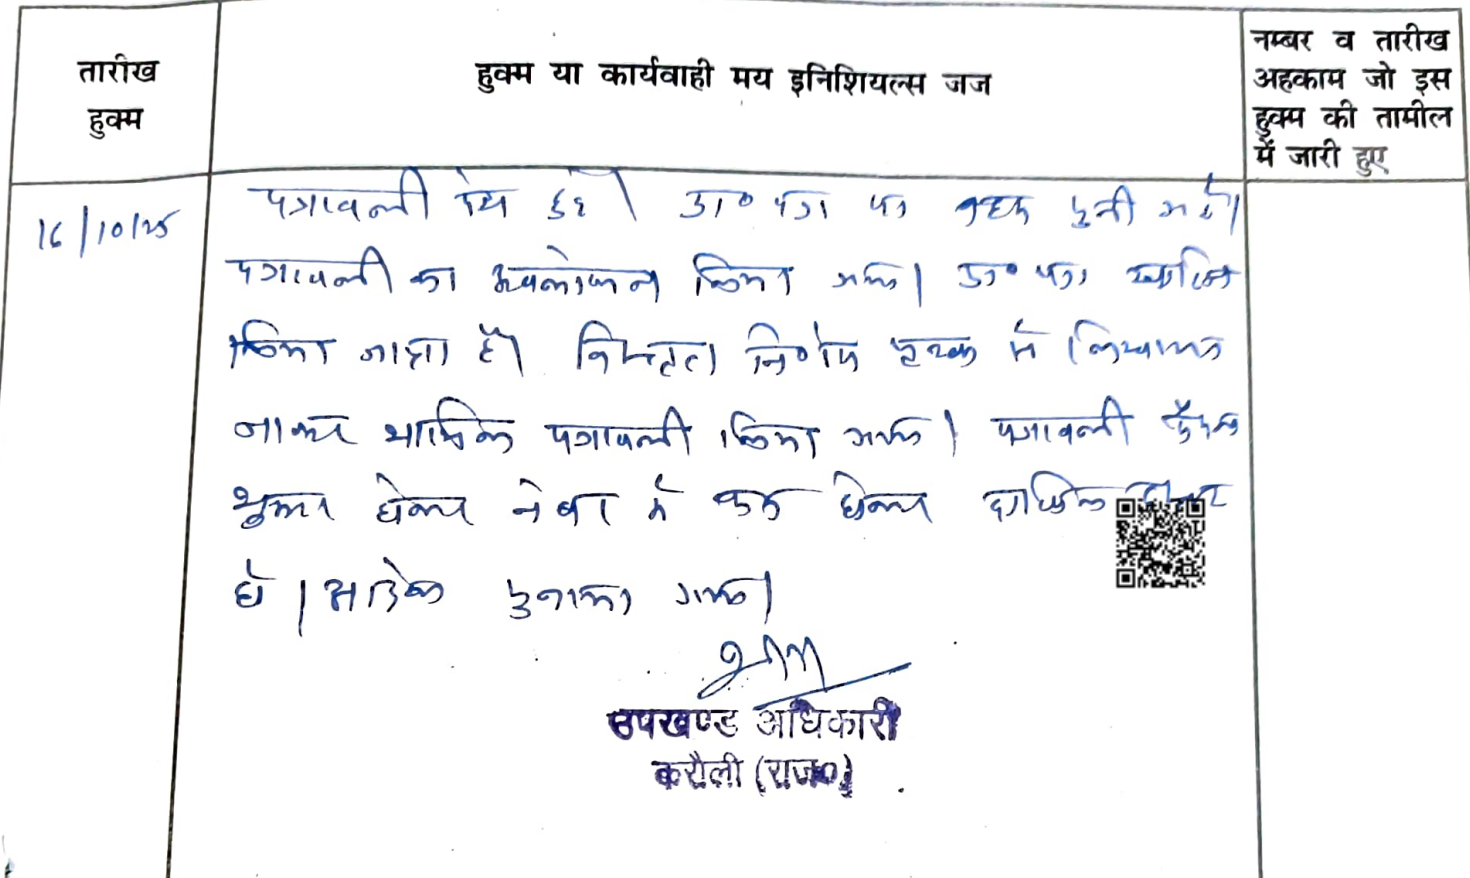 तारीख
हुक्म
हुक्म या कार्यवाही मय इनिशियल्स जज
नम्बर व तारीख
अहकाम जो इस
हुक्म की तामील
में जारी हुए
16/10/25
पत्रावली पेश हुई। प्रा० पत्र पर बहस सुनी गई।
पत्रावली का अवलोकन किया गया। प्रा० पत्र खारिज
किया जाता है। विस्तृत निर्णय पृथक से लिखवाया
जाकर शामिल पत्रावली किया गया। पत्रावली फैसल
शुमार होकर नंबर से कम होकर दाखिल दफ्तर
हो। आदेश सुनाया गया।
उपखण्ड अधिकारी
करौली (राज०)